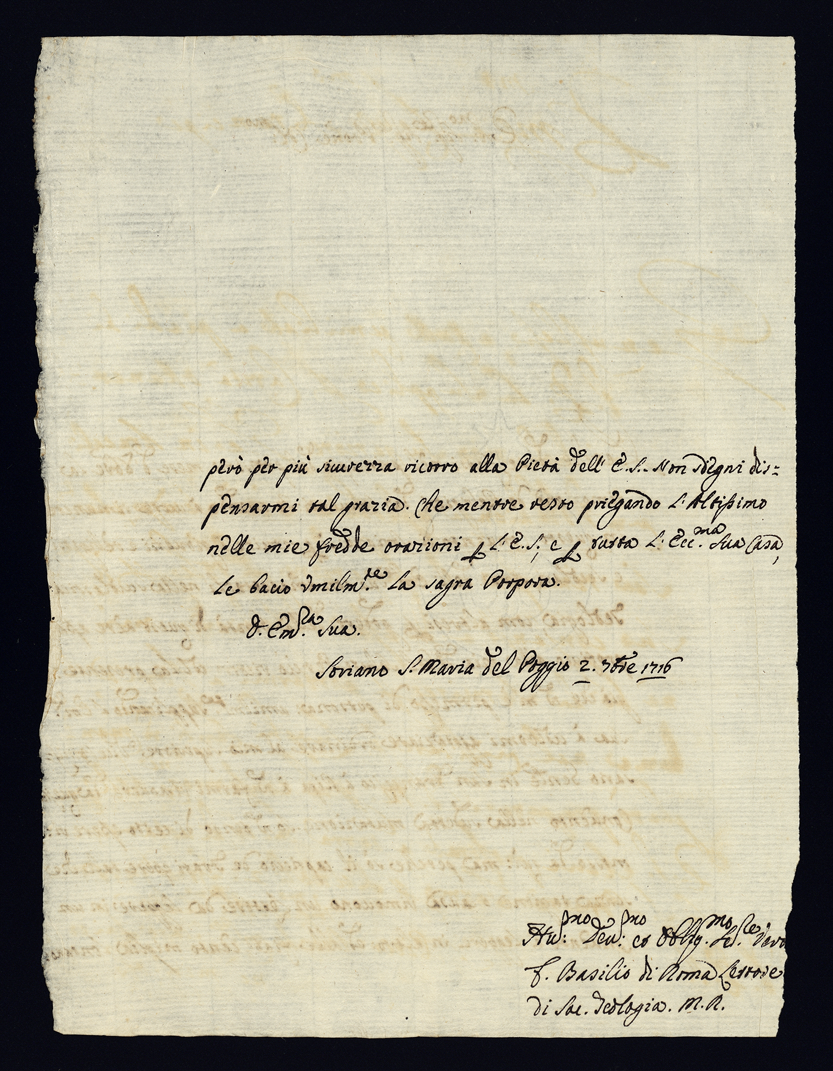 però per più sicurezza ricorro alla Pietà dell' E. S. Non sdegni dis=
pensarmi tal grazia. Che mentre resto priegando L'Altissimo
nelle mie fredde orazioni p L'E.S.; e p tutta L'Ecc.ma Sua Casa,
Le bacio Vmilm.te La sagra Porpora.
D. Em.za Sua.
Soriano S. Maria del Poggio 2. 7bre 1716
Hu.mo Deu.mo et Obblig.mo Se.re Vero
F. Basilio di Roma Lettore
di Sac. Teologia. M. R.